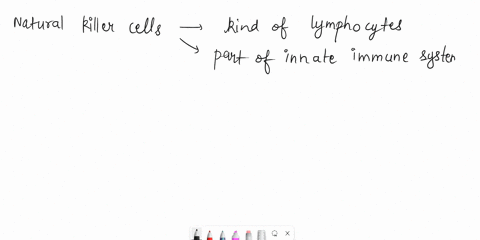 Natural killer cells → kind of lymphocytes
↘ part of innate immune system